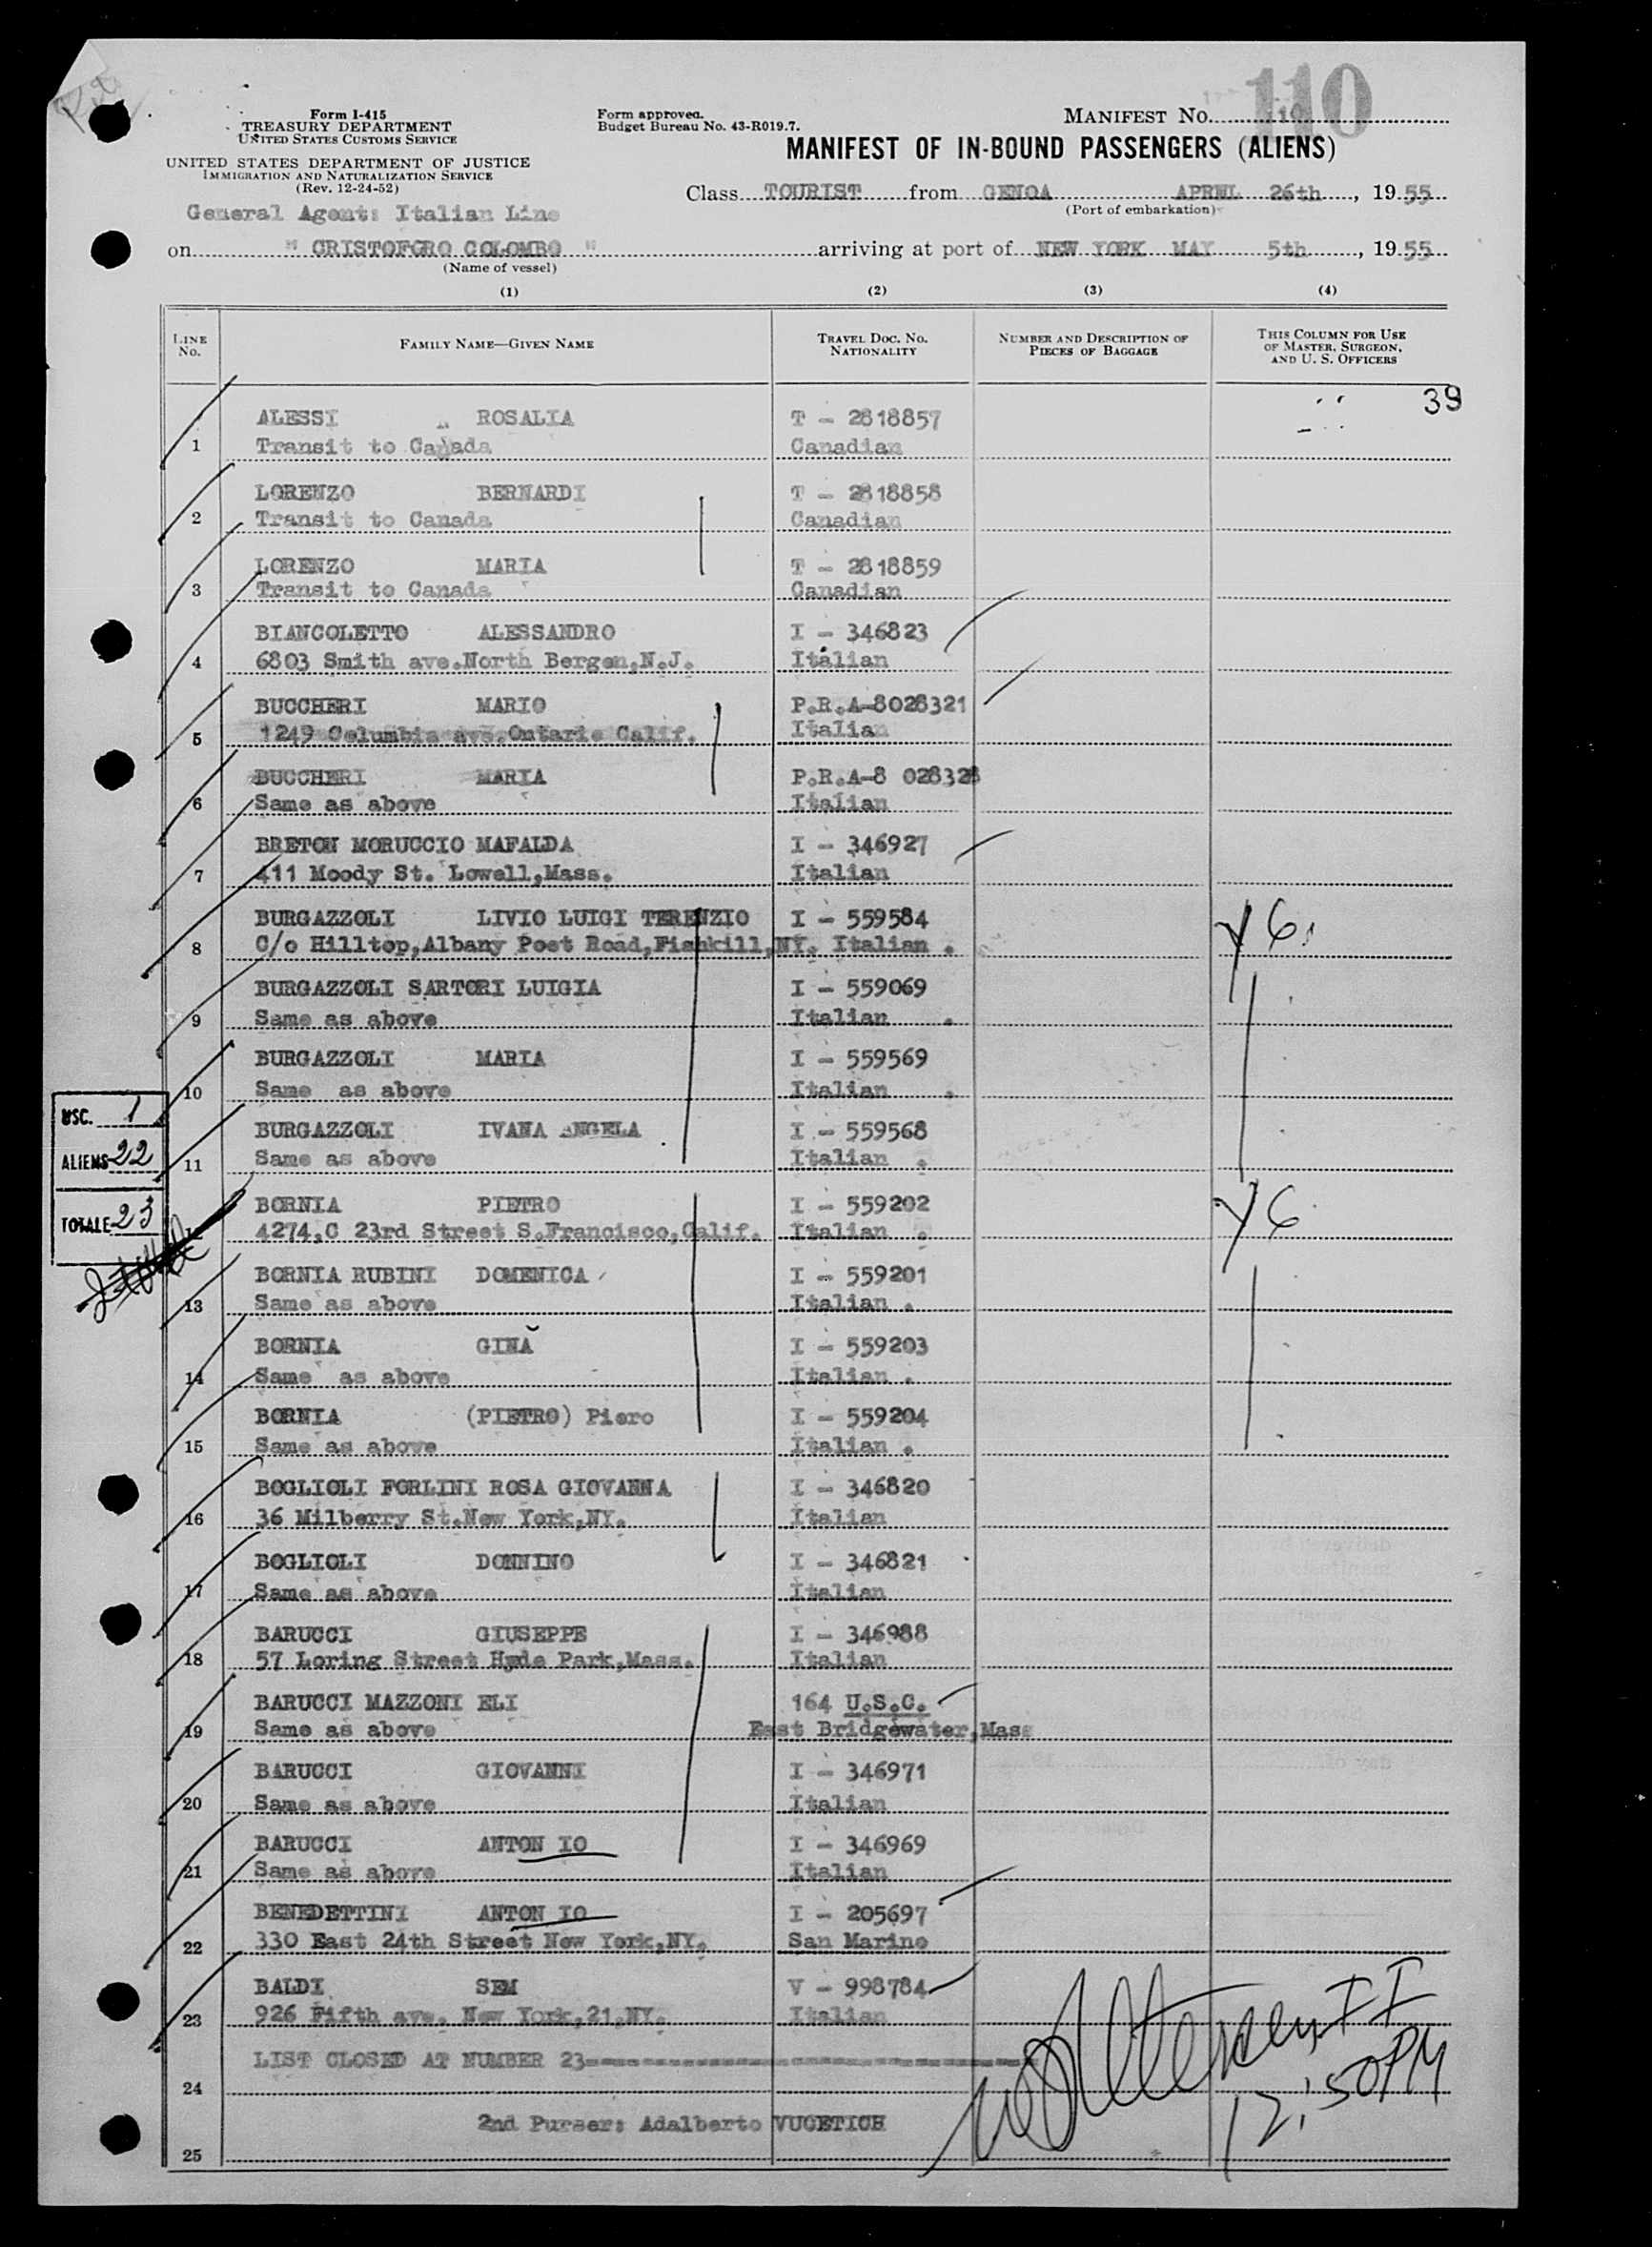 110
Form I-415
TREASURY DEPARTMENT
UNITED STATES CUSTOMS SERVICE
UNITED STATES DEPARTMENT OF JUSTICE
IMMIGRATION AND NATURALIZATION SERVICE
(Rev. 12-24-52)
General Agent: Italian Line
Form approved.
Budget Bureau No. 43-R019.7.
MANIFEST NO. 110
MANIFEST OF IN-BOUND PASSENGERS (ALIENS)
Class TOURIST from GENOA APRIL 26th, 1955
(Port of embarkation)
on " CRISTOFORO COLOMBO " arriving at port of NEW YORK MAY 5th, 1955
(Name of vessel)
(1) (2) (3) (4)
LINE NO.
FAMILY NAME—GIVEN NAME
TRAVEL DOC. NO. NATIONALITY
NUMBER AND DESCRIPTION OF PIECES OF BAGGAGE
THIS COLUMN FOR USE OF MASTER, SURGEON, AND U. S. OFFICERS
39
ALESSI ROSALIA T - 2818857
1 Transit to Canada Canadian
LORENZO BERNARDI T - 2818858
2 Transit to Canada Canadian
LORENZO MARIA T - 2818859
3 Transit to Canada Canadian
BIANCOLETTO ALESSANDRO I - 346823
4 6803 Smith ave.North Bergen,N.J. Italian
BUCCHERI MARIO P.R.A-8028321
5 1249 Columbia ave.Ontario Calif. Italian
BUCCHERI MARIA P.R.A-8 028328
6 Same as above Italian
BRETON MORUCCIO MAFALDA I - 346927
7 411 Moody St. Lowell,Mass. Italian
BURGAZZOLI LIVIO LUIGI TERENZIO I - 559584
8 C/o Hilltop,Albany Post Road,Fishkill,NY. Italian .
BURGAZZOLI SARTORI LUIGIA I - 559069
9 Same as above Italian .
BURGAZZOLI MARIA I - 559569
10 Same as above Italian .
BURGAZZOLI IVANA ANGELA I - 559568
11 Same as above Italian .
USC. 1
ALIENS 22
TOTALE 23
BORNIA PIETRO I - 559202
4274,C 23rd Street S.Francisco,Calif. Italian .
BORNIA RUBINI DOMENICA I - 559201
13 Same as above Italian .
BORNIA GINA I - 559203
14 Same as above Italian .
BORNIA (PIETRO) Piero I - 559204
15 Same as above Italian .
BOGLIOLI FORLINI ROSA GIOVANNA I - 346820
16 36 Milberry St.New York,NY. Italian
BOGLIOLI DONNINO I - 346821
17 Same as above Italian
BARUCCI GIUSEPPE I - 346988
18 57 Loring Street Hyde Park,Mass. Italian
BARUCCI MAZZONI ELI 164 U.S.C.
19 Same as above East Bridgewater,Mass
BARUCCI GIOVANNI I - 346971
20 Same as above Italian
BARUCCI ANTON IO I - 346969
21 Same as above Italian
BENEDETTINI ANTON IO I - 205697
22 330 East 24th Street New York,NY. San Marino
BALDI SEM V - 998784
23 926 Fifth ave. New York,21,NY. Italian
LIST CLOSED AT NUMBER 23
24
2nd Purser: Adalberto VUCETICH
25
12:50PM